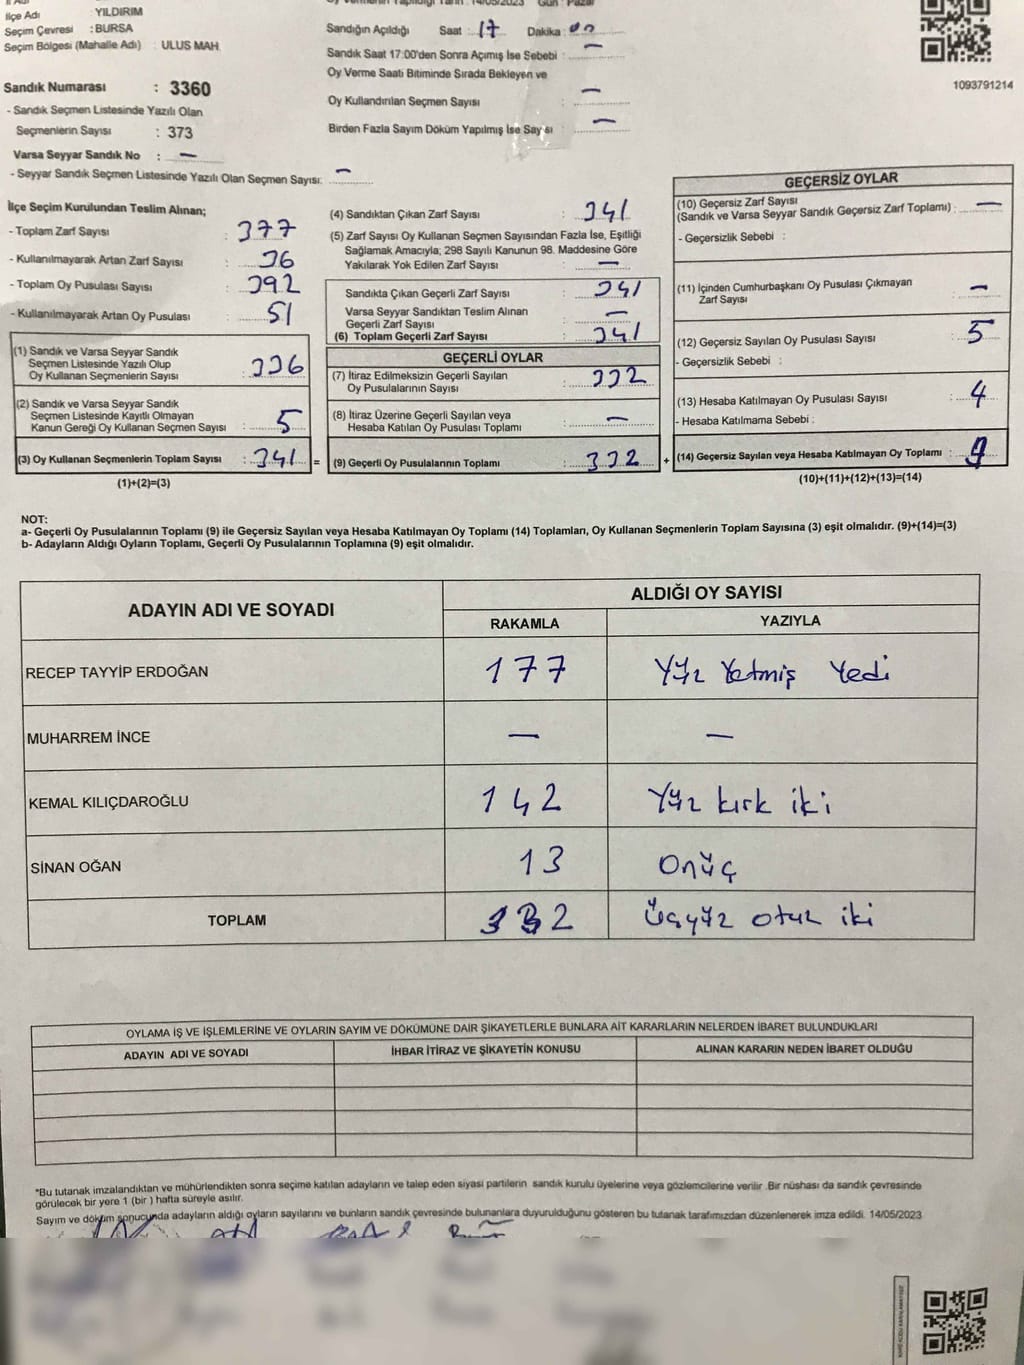 İlçe Adı : YILDIRIM
Seçim Çevresi : BURSA
Seçim Bölgesi (Mahalle Adı) : ULUS MAH.
Sandık Numarası : 3360
- Sandık Seçmen Listesinde Yazılı Olan
Seçmenlerin Sayısı : 373
Varsa Seyyar Sandık No : —
- Seyyar Sandık Seçmen Listesinde Yazılı Olan Seçmen Sayısı: —
14/05/2023 Gün : Pazar
Sandığın Açıldığı Saat : 17 Dakika : 00
Sandık Saat 17:00'den Sonra Açımış İse Sebebi : —
Oy Verme Saati Bitiminde Sırada Bekleyen ve
Oy Kullandırılan Seçmen Sayısı : —
Birden Fazla Sayım Döküm Yapılmış İse Sayısı : —
1093791214
İlçe Seçim Kurulundan Teslim Alınan;
- Toplam Zarf Sayısı : 377
- Kullanılmayarak Artan Zarf Sayısı : 36
- Toplam Oy Pusulası Sayısı : 392
- Kullanılmayarak Artan Oy Pusulası : 51
(1) Sandık ve Varsa Seyyar Sandık
Seçmen Listesinde Yazılı Olup
Oy Kullanan Seçmenlerin Sayısı : 336
(2) Sandık ve Varsa Seyyar Sandık
Seçmen Listesinde Kayıtlı Olmayan
Kanun Gereği Oy Kullanan Seçmen Sayısı : 5
(3) Oy Kullanan Seçmenlerin Toplam Sayısı : 341 =
(1)+(2)=(3)
(4) Sandıktan Çıkan Zarf Sayısı : 341
(5) Zarf Sayısı Oy Kullanan Seçmen Sayısından Fazla İse, Eşitliği
Sağlamak Amacıyla; 298 Sayılı Kanunun 98. Maddesine Göre
Yakılarak Yok Edilen Zarf Sayısı : —
Sandıkta Çıkan Geçerli Zarf Sayısı : 341
Varsa Seyyar Sandıktan Teslim Alınan
Geçerli Zarf Sayısı : —
(6) Toplam Geçerli Zarf Sayısı : 341
GEÇERLİ OYLAR
(7) İtiraz Edilmeksizin Geçerli Sayılan
Oy Pusulalarının Sayısı : 332
(8) İtiraz Üzerine Geçerli Sayılan veya
Hesaba Katılan Oy Pusulası Toplamı : —
(9) Geçerli Oy Pusulalarının Toplamı : 332 +
GEÇERSİZ OYLAR
(10) Geçersiz Zarf Sayısı
(Sandık ve Varsa Seyyar Sandık Geçersiz Zarf Toplamı) : —
- Geçersizlik Sebebi :
(11) İçinden Cumhurbaşkanı Oy Pusulası Çıkmayan
Zarf Sayısı : —
(12) Geçersiz Sayılan Oy Pusulası Sayısı : 5
- Geçersizlik Sebebi :
(13) Hesaba Katılmayan Oy Pusulası Sayısı : 4
- Hesaba Katılmama Sebebi :
(14) Geçersiz Sayılan veya Hesaba Katılmayan Oy Toplamı : 9
(10)+(11)+(12)+(13)=(14)
NOT:
a- Geçerli Oy Pusulalarının Toplamı (9) ile Geçersiz Sayılan veya Hesaba Katılmayan Oy Toplamı (14) Toplamları, Oy Kullanan Seçmenlerin Toplam Sayısına (3) eşit olmalıdır. (9)+(14)=(3)
b- Adayların Aldığı Oyların Toplamı, Geçerli Oy Pusulalarının Toplamına (9) eşit olmalıdır.
ADAYIN ADI VE SOYADI ALDIĞI OY SAYISI
RAKAMLA YAZIYLA
RECEP TAYYİP ERDOĞAN 177 Yüz Yetmiş Yedi
MUHARREM İNCE — —
KEMAL KILIÇDAROĞLU 142 Yüz kırk iki
SİNAN OĞAN 13 Onüç
TOPLAM 332 Üçyüz otuz iki
OYLAMA İŞ VE İŞLEMLERİNE VE OYLARIN SAYIM VE DÖKÜMÜNE DAİR ŞİKAYETLERLE BUNLARA AİT KARARLARIN NELERDEN İBARET BULUNDUKLARI
ADAYIN ADI VE SOYADI İHBAR İTİRAZ VE ŞİKAYETİN KONUSU ALINAN KARARIN NEDEN İBARET OLDUĞU
*Bu tutanak imzalandıktan ve mühürlendikten sonra seçime katılan adayların ve talep eden siyasi partilerin sandık kurulu üyelerine veya gözlemcilerine verilir .Bir nüshası da sandık çevresinde
görülecek bir yere 1 (bir ) hafta süreyle asılır.
Sayım ve döküm sonucunda adayların aldığı oyların sayılarını ve bunların sandık çevresinde bulunanlara duyurulduğunu gösteren bu tutanak tarafımızdan düzenlenerek imza edildi. 14/05/2023